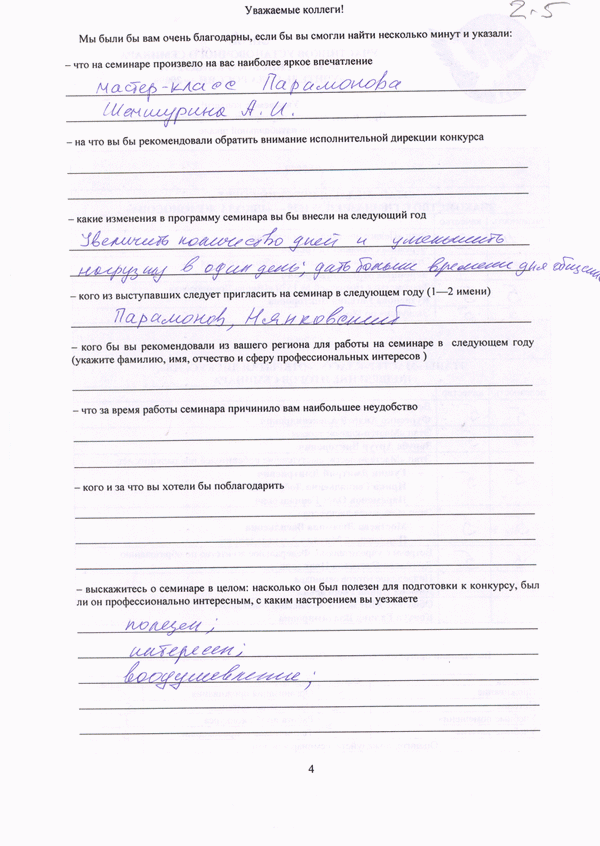 2.5
Уважаемые коллеги!
Мы были бы вам очень благодарны, если бы вы смогли найти несколько минут и указали:
– что на семинаре произвело на вас наиболее яркое впечатление
мастер-класс Парамонова
Шемшурина А. И.
– на что вы бы рекомендовали обратить внимание исполнительной дирекции конкурса
– какие изменения в программу семинара вы бы внесли на следующий год
Увеличить количество дней и уменьшить
нагрузку в один день; дать больше времени для общения
– кого из выступавших следует пригласить на семинар в следующем году (1—2 имени)
Парамонов, Нянковский
– кого бы вы рекомендовали из вашего региона для работы на семинаре в следующем году
(укажите фамилию, имя, отчество и сферу профессиональных интересов )
– что за время работы семинара причинило вам наибольшее неудобство
– кого и за что вы хотели бы поблагодарить
– выскажитесь о семинаре в целом: насколько он был полезен для подготовки к конкурсу, был
ли он профессионально интересным, с каким настроением вы уезжаете
полезен;
интересен;
воодушевление;
4